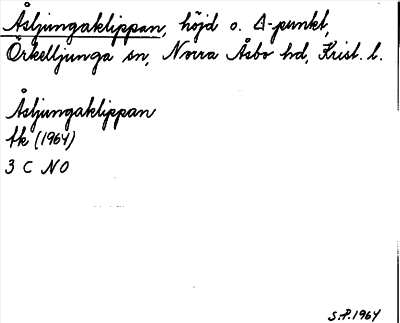 Åsljungaklippan, höjd o. Δ-punkt,
Örkelljunga sn, Norra Åsbo hd, Krist. l.
Åsljungaklippan
fk (1964)
3 C NO
S.P. 1964